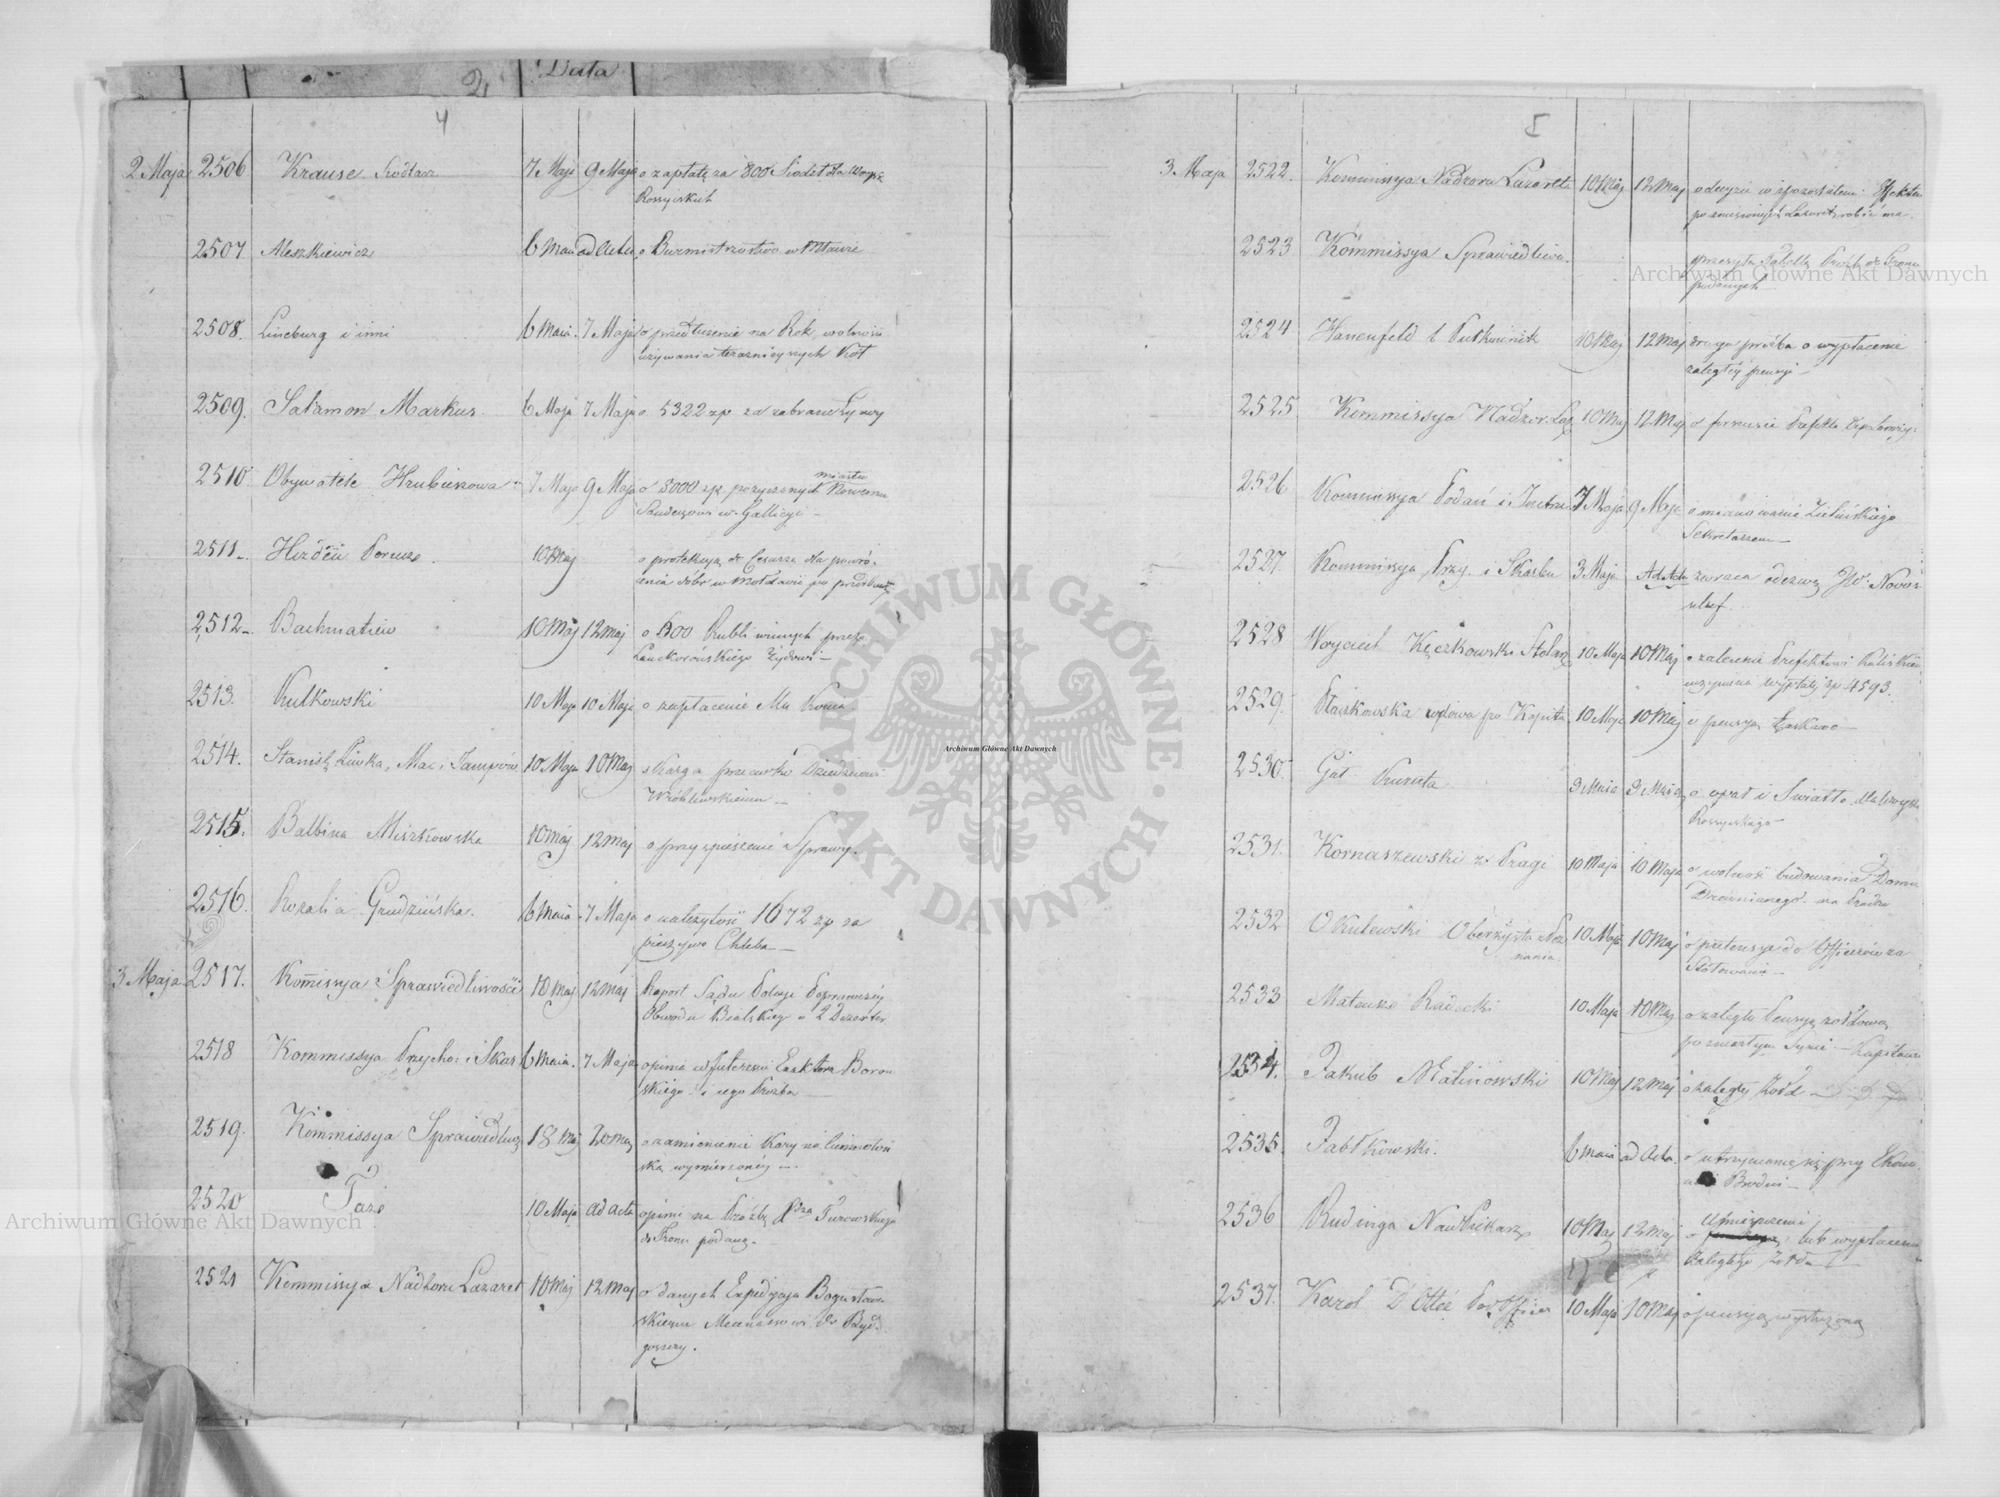 2
Data
4
2 Maja 2506 Krause Siodlarz 7 Maja 9 Maja o zapłatę za 800 Siodeł dla Woysk
Rossyiskich
2507 Meszkiewicz 6 Maia ad Acta o Burmistrzostwo w Mławie
2508. Lineburg i inni 6 Maia. 7 Maja o przedłużenie na Rok wolności
używania teraznieyszych
2509. Salamon Markus. 6 Maja 7 Maja o 5322 zp za zabrane
2510 Obywatele Hrubieszowa 7 Maja 9 Maja o 3000 zp pożyczonych miastu Nowemu
w Gallicyi
2511 10 Maj o protekcyą do Cesarza dla powró-
cenia dóbr w Mołdawii po
2512 Bachmatiew 10 Maj 12 Maj o 600 Rubli winnych przez
Lanckorońskiego Żydowi
2513. Kutkowski 10 Maja 10 Maja o zapłacenie Mu Konia
2514. Stanisł. Mac. 10 Maja 10 Maj skarga przeciwko Dziedzicowi
Wróblewskiemu
2515. Balbina Miszkowska 10 Maj 12 Maj o przyspieszenie Sprawy.
2516. Rozalia Grudzińska. 6 Maia 7 Maja o należytość 1672 zp za
pieczywo Chleba
3 Maja 2517. Komissya Sprawiedliwości 10 Maj 12 Maj Raport Sądu Policyi Poprawczey
Obwodu Bialskiego o 2 Dezerter
2518 Kommissya Przycho: i Skar 6 Maia. 7 Maja opinia w Interesie Boro
skiego i iego Prozba
2519. Kommissya Sprawiedliw 18 Maj 20 Maj o zamienienie Kary na
ską wymierzonéy
2520 Taż 10 Maja ad acta opinia na Proźbę Turowskiego
do Tronu podaną
2521 Kommissya Nadzoru Lazaret 10 Maj 12 Maj o danych Expedycyą Bogusław
skiemu do Byd
goszczy.
5
3 Maja 2522. Kommissya Nadzoru Lazaretó 10 Maj 12 Maj o decyzie w pozostałemi Effektami
po zniesionych Lazaret: robić ma.
2523 Kommissya Sprawiedliwo. przesyła Tabellę Proźb do Tronu
podanych
2524 Hanenfeld b Pułkownik 10 Maj 12 Maj druga prośba o wypłacenie
zaległéy pensyi
2525 Kommissya Nadzor. Laz 10 Maj 12 Maj o Prefekta Dep Łomży:
2526 Kommissya Podań i Instru 7 Maja 9 Maja o mianowanie Zielińskiego
Sekretarzem
2527. Kommissya Przy. i Skarbu 3 Maja Ad Acta zwraca odezwę JW. Novos-
silzof.
2528 Woyciech Kęczkowski Stolarz 10 Maja 10 Maj o zalecenie Prefektowi Kaliskiemu
uczynienia wypłaty zp 4593.
2529. wdowa po Kapita 10 Maja 10 Maj o pensyą
2530. Kuruta 3 Maia 3 Maia o opał i Swiatło dla Woyska
Rossyiskiego
2531. Kornaszewski z Pragi 10 Maja 10 Maja o wolność budowania Domu
Drewnianego na Pradze
2532 Okulewski Oberżysta z Poz
nania 10 Maja 10 Maj o pretensye do Officerów za
Stołowanie
2533 Mateusz Radecki 10 Maja 10 Maj o zaległą Pensyą żołdową
po zmarłym Synie Kapitanie
2534. Jakub Malinowski 10 Maj 12 Maj o zaległy Żołd
2535. Jabłkowski. 6 Maia ad Acta. o utrzymanie się przy
Brodni
2536 Rudinga Nadlekarz 10 Maj 12 Maj o Umieszczenie lub wypłacenie
Zaległego Żołdu
2537. Karol D'Ottée Podofficer 10 Maja 10 Maj o pensyą wysłużoną
Archiwum Główne Akt Dawnych
Archiwum Główne Akt Dawnych
Archiwum Główne Akt Dawnych
ARCHIWUM GŁÓWNE · AKT DAWNYCH ·